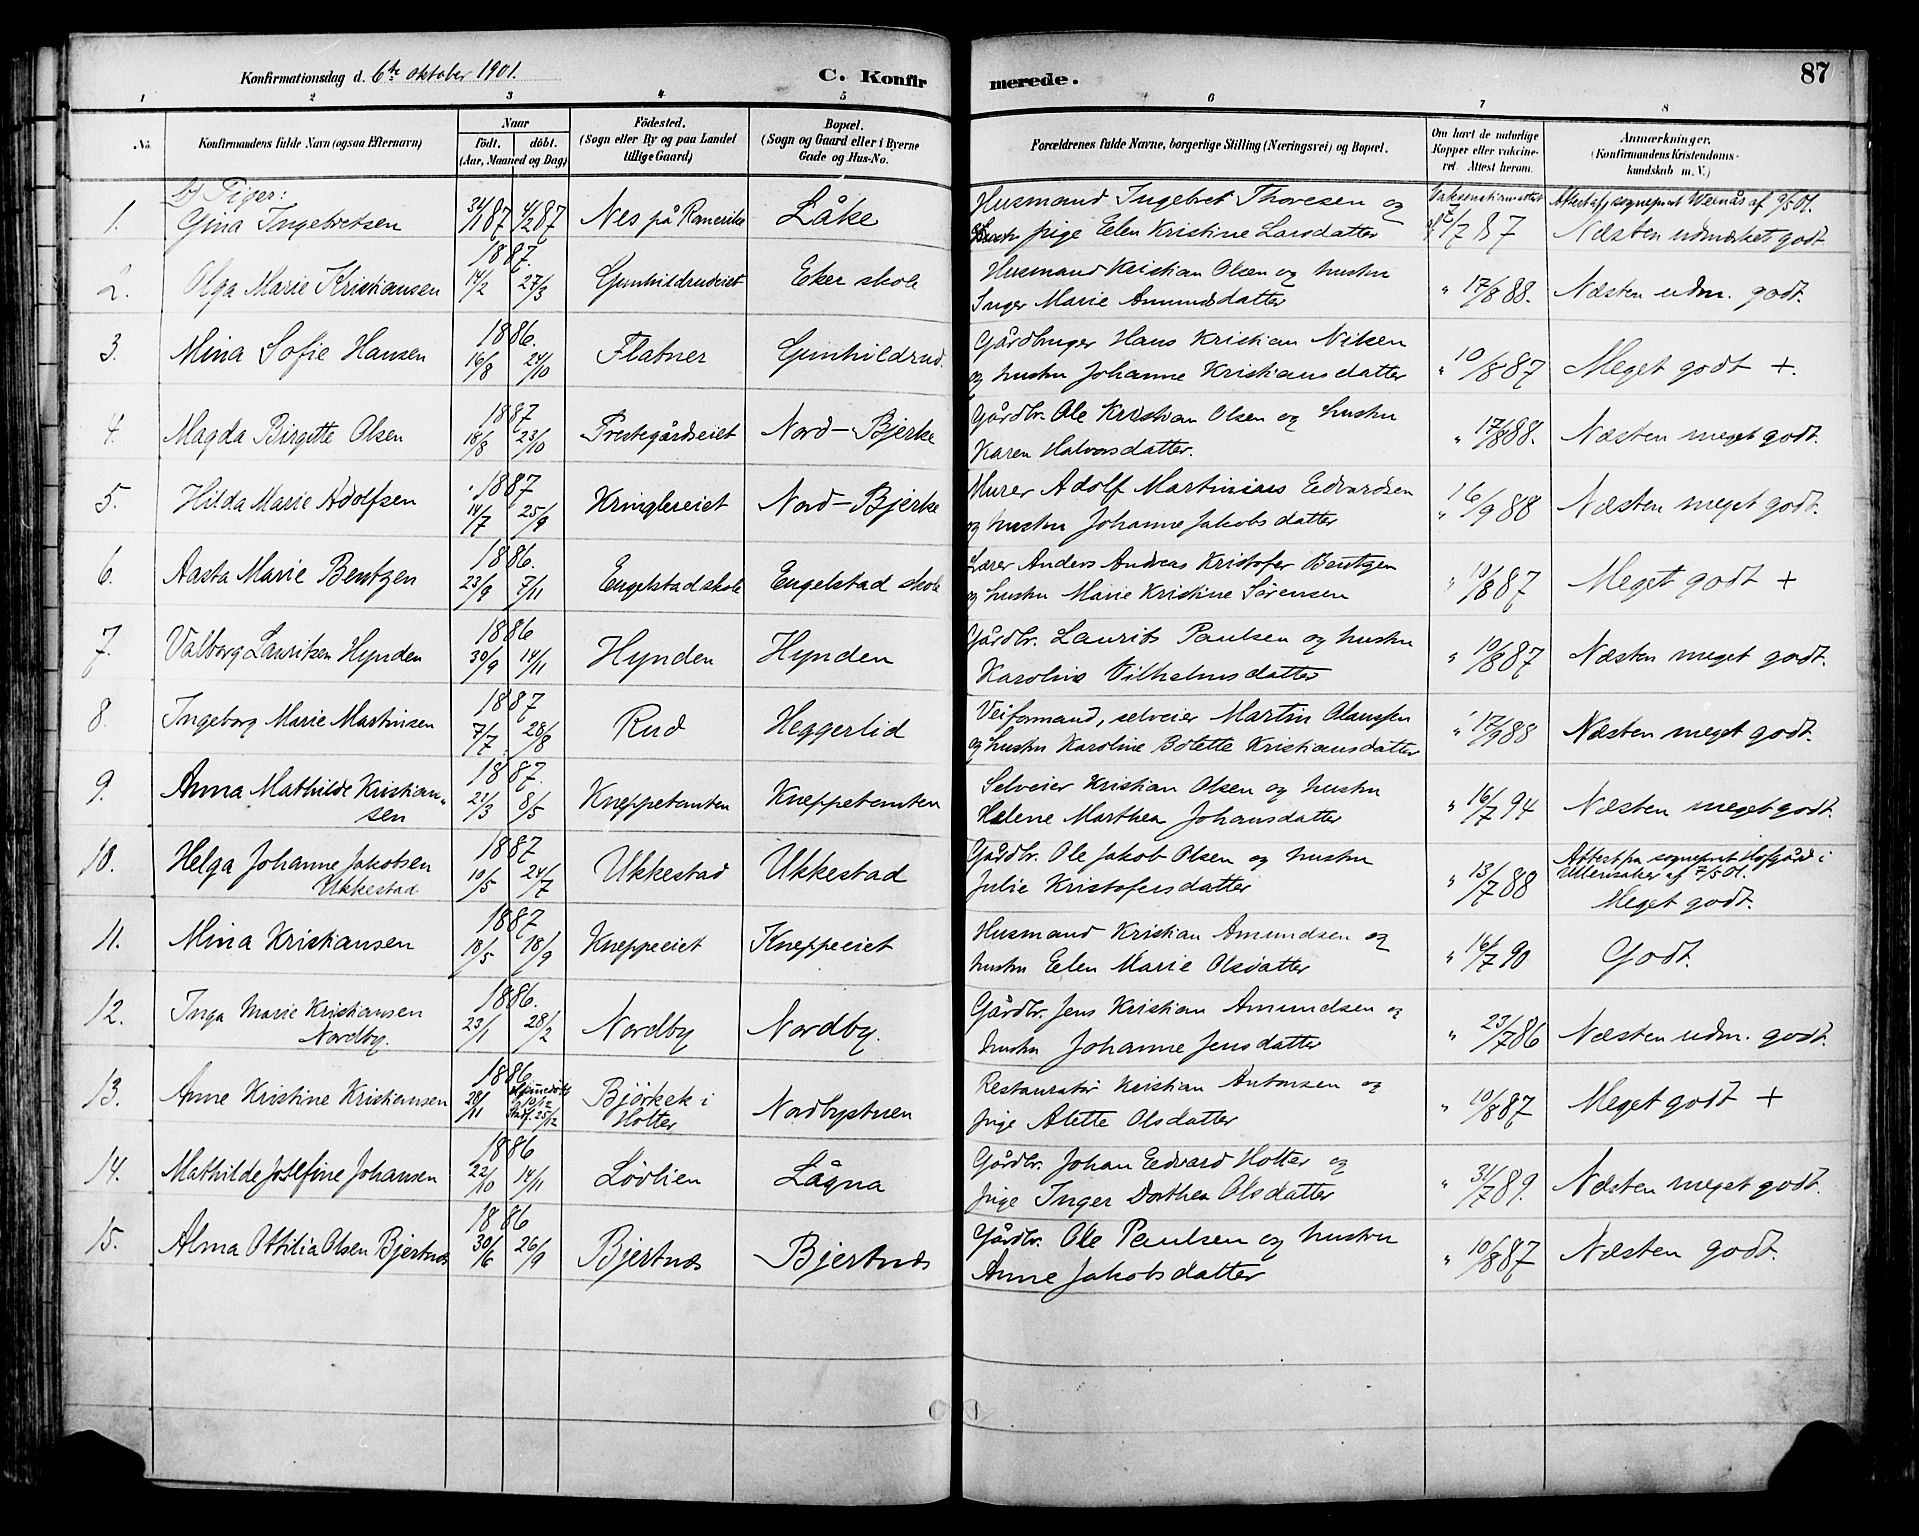 Konfirmationsdag d. 6te oktober 1901.
C. Konfirmerede.
87
1 2 3 4 5 6 7 8
No.
Konfirmandens fulde Navn (ogsaa Efternavn)
Naar
födt. döbt.
(Aar, Maaned og Dag)
Födested.
(Sogn eller By og paa Landet
tillige Gaard)
Bopæl.
(Sogn og Gaard eller i Byerne
Gade og Hus-No.
Forældrenes fulde Navne, borgerlige Stilling (Næringsvei) og Bopæl.
Om havt de naturlige
Kopper eller vakcine-
ret. Attest herom.
Anmærkninger.
(Konfirmandens Kristendoms-
kundskab m. V.)
b) Piger:
1. Gina Ingebretsen 31/1 87 4/2 87 Nes på Romerike Låke
Husmand Ingebret Thoresen og
pige Elen Kristine Larsdatter
Vaksenationsattest
/7 87
Attest fra sogneprest Wernås af 9/5 01.
Næsten udmærket godt
2. Olga Marie Kristiansen 1887. 14/2 27/3 Gunhildrudeiet Eker skole
Husmand Kristian Olsen og hustru
Inger Marie Amundsdatter
" 17/8 88. Næsten udm. godt.
3. Mina Sofie Hansen 1886. 16/8 24/10 Flatner Gunhildrud.
Gårdbruger Hans Kristian Nilsen
og hustru Johanne Kristiansdatter
" 10/8 87 Meget godt +.
4. Magda Birgitte Olsen 1887 18/8 23/10 Prestegårdseiet Nord-Bjerke
Gårdbr. Ole Kristian Olsen og hustru
Karen Halvorsdatter.
" 17/8 88. Næsten meget godt.
5. Hilda Marie Adolfsen 1887 14/7 25/9 Kringlereiet Nord-Bjerke
Murer Adolf Martinius Edvardsen
og hustru Johanne Jakobsdatter
" 16/9 88 Næsten meget godt.
6. Aasta Marie Bentzen 1886. 23/9 7/11 Engelstad skole Engelstad skole
Lærer Anders Andreas Kristofer Bentzen
og hustru Marie Kristine Sørensen
" 10/8 87 Meget godt +
7. Valborg Lauritsen Hynden 1886 30/9 14/11 Hynden Hynden
Gårdbr. Laurits Paulsen og hustru
Karoline Vilhelmsdatter
" 10/8 87 Næsten meget godt.
8. Ingeborg Marie Martinsen 1887 7/7. 28/8 Rud Heggerlid
Veiformand, selveier Martin Olaussen
og hustru Karoline Bolette Kristiansdatter
" 17/9 88 Næsten meget godt.
9. Anna Mathilde Kristian-
sen 1887. 21/3 8/5 Kneppetomten Kneppetomten
Selveier Kristian Olsen og hustru
Helene Marthea Johansdatter
" 16/7 94 Næsten meget godt.
10. Helga Johanne Jakobsen
Ukkestad 1887 10/5 24/7 Ukkestad Ukkestad
Gårdbr. Ole Jakob Olsen og hustru
Julie Kristofersdatter
" 13/7 88
Attest fra sogneprest Hofgård i
Ullensaker af 7/5 01.
Meget godt.
11. Mina Kristiansen 1887 18/5 18/9 Kneppeeiet Kneppeeiet
Husmand Kristian Amundsen og
hustru Elen Marie Olsdatter
" 16/7 90 Godt.
12. Inga Marie Kristiansen
Nordby. 1886. 23/1 28/2 Nordby Nordby.
Gårdbr. Jens Kristian Amundsen og
hustru Johanne Jensdatter
" 23/7 86 Næsten udm. godt.
13. Anne Kristine Kristiansen 1886 28/11 Hjemmedøbt 12/12 Stadf. 25/12 Bjørkek i
Holter Nordbystuen
Restauratør Kristian Antonsen og
pige Alette Olsdatter
" 10/8 87 Meget godt +
14. Mathilde Josefine Johansen 1886 22/10 14/11 Lødlien Lågna
Gårdbr. Johan Edvard Holter og
pige Inger Dorthea Olsdatter
" 31/7 89. Næsten meget godt.
15. Alma Ottilia Olsen Bjertnæs 1886 30/6 26/9 Bjertnæs Bjertnæs
Gårdbr. Ole Paulsen og hustru
Anne Jakobsdatter
" 10/8 87 Næsten godt.